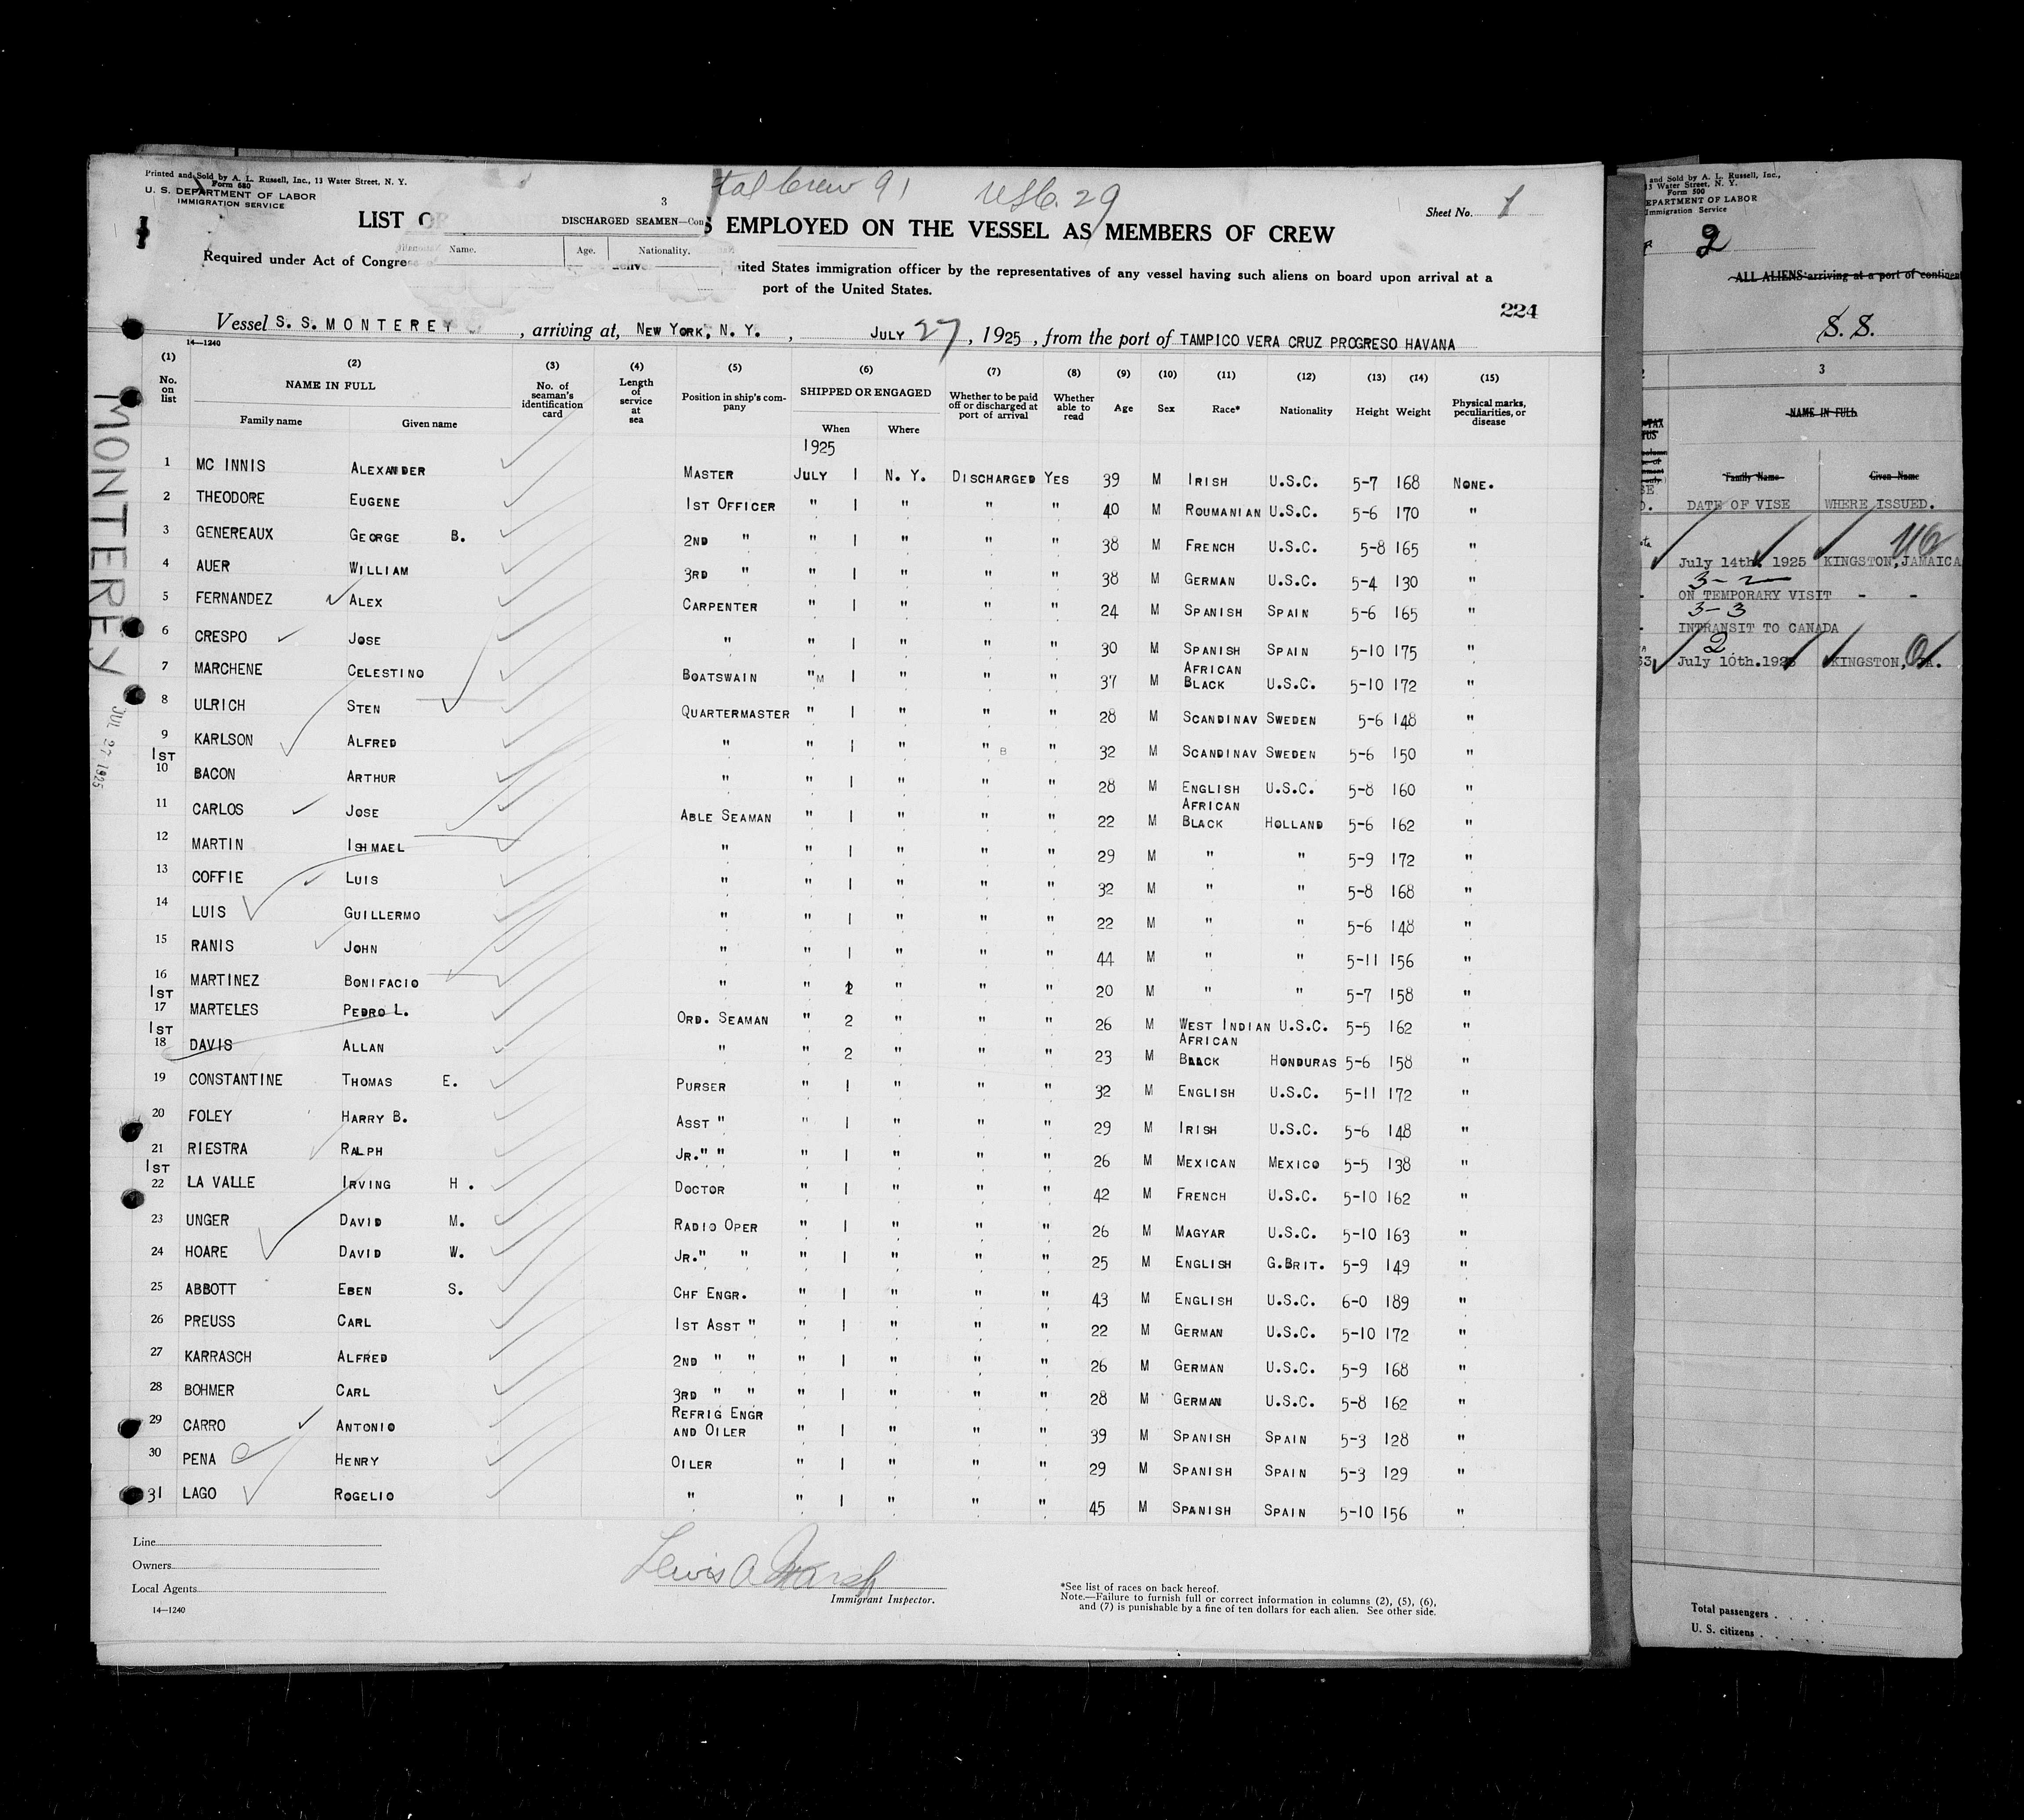 Printed and Sold by A. L. Russell, Inc., 13 Water Street, N. Y.
Form 680
U. S. DEPARTMENT OF LABOR
IMMIGRATION SERVICE
Crew 91 USC. 29
3
DISCHARGED SEAMEN—Con
Name. Age. Nationality.
Sheet No. 1
LIST OF EMPLOYED ON THE VESSEL AS MEMBERS OF CREW
Required under Act of Congre ited States immigration officer by the representatives of any vessel having such aliens on board upon arrival at a
port of the United States.
224
Vessel S. S. MONTEREY, arriving at, NEW YORK, N. Y., JULY 27, 1925, from the port of TAMPICO VERA CRUZ PROGRESO HAVANA
14—1240
(1) (2) (3) (4) (5) (6) (7) (8) (9) (10) (11) (12) (13) (14) (15)
No. on list NAME IN FULL Family name Given name No. of seaman's identification card Length of service at sea Position in ship's company SHIPPED OR ENGAGED When Where Whether to be paid off or discharged at port of arrival Whether able to read Age Sex Race* Nationality Height Weight Physical marks, peculiarities, or disease
1925
1 MC INNIS ALEXANDER MASTER JULY 1 N. Y. DISCHARGED YES 39 M IRISH U.S.C. 5-7 168 NONE.
2 THEODORE EUGENE 1ST OFFICER " 1 " " " 40 M ROUMANIAN U.S.C. 5-6 170 "
3 GENEREAUX GEORGE B. 2ND " " 1 " " " 38 M FRENCH U.S.C. 5-8 165 "
4 AUER WILLIAM 3RD " " 1 " " " 38 M GERMAN U.S.C. 5-4 130 "
5 FERNANDEZ ALEX CARPENTER " 1 " " " 24 M SPANISH SPAIN 5-6 165 "
6 CRESPO JOSE " " 1 " " " 30 M SPANISH SPAIN 5-10 175 "
7 MARCHENE CELESTINO BOATSWAIN "M 1 " " " 37 M AFRICAN BLACK U.S.C. 5-10 172 "
8 ULRICH STEN QUARTERMASTER " 1 " " " 28 M SCANDINAV SWEDEN 5-6 148 "
9 KARLSON ALFRED " " 1 " " B " 32 M SCANDINAV SWEDEN 5-6 150 "
1ST
10 BACON ARTHUR " " 1 " " " 28 M ENGLISH U.S.C. 5-8 160 "
11 CARLOS JOSE ABLE SEAMAN " 1 " " " 22 M AFRICAN BLACK HOLLAND 5-6 162 "
12 MARTIN ISHMAEL " " 1 " " " 29 M " " 5-9 172 "
13 COFFIE LUIS " " 1 " " " 32 M " " 5-8 168 "
14 LUIS GUILLERMO " " 1 " " " 22 M " " 5-6 148 "
15 RANIS JOHN " " 1 " " " 44 M " " 5-11 156 "
16 MARTINEZ BONIFACIO " " 1 " " " 20 M " " 5-7 158 "
1ST
17 MARTELES PEDRO L. ORD. SEAMAN " 2 " " " 26 M WEST INDIAN U.S.C. 5-5 162 "
1ST
18 DAVIS ALLAN " " 2 " " " 23 M AFRICAN BLACK HONDURAS 5-6 158 "
19 CONSTANTINE THOMAS E. PURSER " 1 " " " 32 M ENGLISH U.S.C. 5-11 172 "
20 FOLEY HARRY B. ASST " " 1 " " " 29 M IRISH U.S.C. 5-6 148 "
21 RIESTRA RALPH JR." " " 1 " " " 26 M MEXICAN MEXICO 5-5 138 "
1ST
22 LA VALLE IRVING H. DOCTOR " 1 " " " 42 M FRENCH U.S.C. 5-10 162 "
23 UNGER DAVID M. RADIO OPER " 1 " " " 26 M MAGYAR U.S.C. 5-10 163 "
24 HOARE DAVID W. JR." " " 1 " " " 25 M ENGLISH G.BRIT. 5-9 149 "
25 ABBOTT EBEN S. CHF ENGR. " 1 " " " 43 M ENGLISH U.S.C. 6-0 189 "
26 PREUSS CARL 1ST ASST " " 1 " " " 22 M GERMAN U.S.C. 5-10 172 "
27 KARRASCH ALFRED 2ND " " " 1 " " " 26 M GERMAN U.S.C. 5-9 168 "
28 BOHMER CARL 3RD " " " 1 " " " 28 M GERMAN U.S.C. 5-8 162 "
29 CARRO ANTONIO REFRIG ENGR AND OILER " 1 " " " 39 M SPANISH SPAIN 5-3 128 "
30 PENA HENRY OILER " 1 " " " 29 M SPANISH SPAIN 5-3 129 "
31 LAGO ROGELIO " " 1 " " " 45 M SPANISH SPAIN 5-10 156 "
MONTEREY
JUL 27 1925
Line
Owners
Local Agents
14—1240
Lewis A
Immigrant Inspector.
*See list of races on back hereof.
Note.—Failure to furnish full or correct information in columns (2), (5), (6),
and (7) is punishable by a fine of ten dollars for each alien. See other side.
and Sold by A. L. Russell, Inc.,
13 Water Street, N. Y.
Form 500
EPARTMENT OF LABOR
Immigration Service
2
ALL ALIENS arriving at a port of continen
S. S.
3
NAME IN FULL
Family Name Given Name
DATE OF VISE WHERE ISSUED.
July 14th. 1925 KINGSTON, JAMAICA
3-2
ON TEMPORARY VISIT - -
3-3
INTRANSIT TO CANADA
2
July 10th.1925 KINGSTON, JA.
Total passengers
U. S. citizens